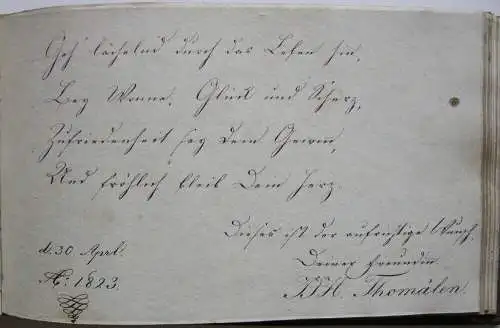 Geh' lächelnd durch das Leben hin,
Bey Wonne, Glück und Scherz,
Zufriedenheit sey Dein Gewinn,
Und fröhlich bleib Dein Herz.
Dieses ist der aufrichtige Wunsch
Deiner Freundin
d: 30 April.
Ao: 1823.
Thomälen.